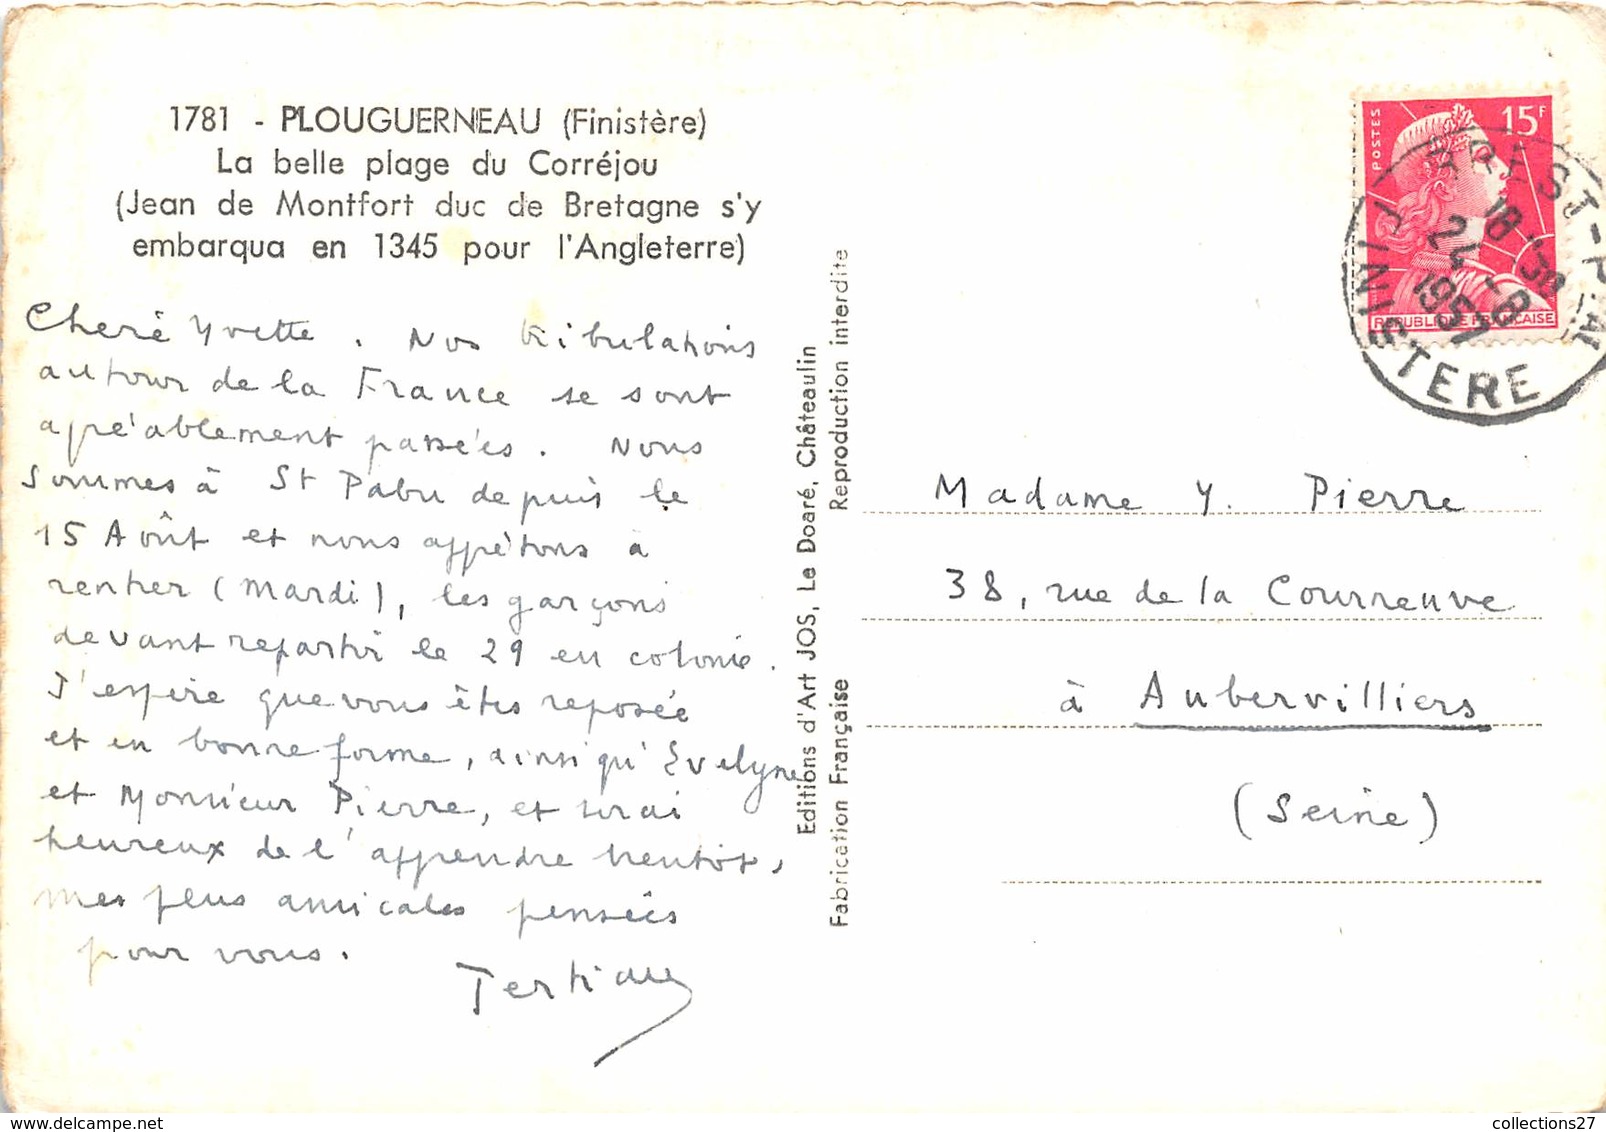 1781 - PLOUGUERNEAU (Finistère)
La belle plage du Corréjou
(Jean de Montfort duc de Bretagne s'y
embarqua en 1345 pour l'Angleterre)
Cherè Yvette. Nos tribulations
autour de la France se sont
agréablement passées. Nous
sommes à St Pabu depuis le
15 Août et nous apprêtons à
rentrer (Mardi), les garçons
devant repartir le 29 en colonie.
J'espère que vous êtes reposée
et en bonne forme, ainsi qu'Evelyne
et Monsieur Pierre, et serai
heureux de l'apprendre bientôt,
mes plus amicales pensées
pour vous.
Editions d'Art JOS, Le Doaré, Châteaulin
Fabrication Française Reproduction interdite
POSTES 15F
REPUBLIQUE FRANÇAISE
BREST-PAL
18-30
24-8
1957
FINISTERE
Madame Y. Pierre
38, rue de la Courneuve
à Aubervilliers
(Seine)
collections27